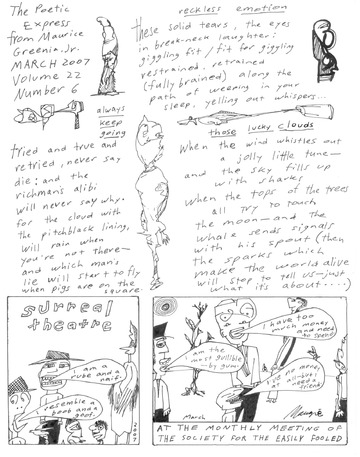 The Poetic
Express
from Maurice
Greenia, Jr.
MARCH 2007
Volume 22
Number 6
always
keep
going
tried and true and
retried, never say
die: and the
richman's alibi
will never say why.
for the cloud with
the pitchblack lining,
will rain when
you're not there—
and which man's
lie will start to fly
when pigs are on the
square.
reckless emotion
these solid tears, the eyes
in break-neck laughter:
giggling fist/fit for giggling
restrained. retrained
(fully brained) along the
path of weeping in your
sleep, yelling out whispers...
those lucky clouds
When the wind whistles out
a jolly little tune—
and the sky fills up
with sharks
When the tops of the trees
all try to touch
the moon—and the
whale sends signals
with his spout (then
the sparks which
make the world alive
will stop to tell us—just
what it's about....)
surreal
theatre
i am a
rube and a
i resemble a
boob and a
goof.
2007
i have too
much money
and need
to spend
i am the
most gullible
by gum!
i've no money
at all—but i
need a
friend!
March
Maurice
AT THE MONTHLY MEETING OF
THE SOCIETY FOR THE EASILY FOOLED